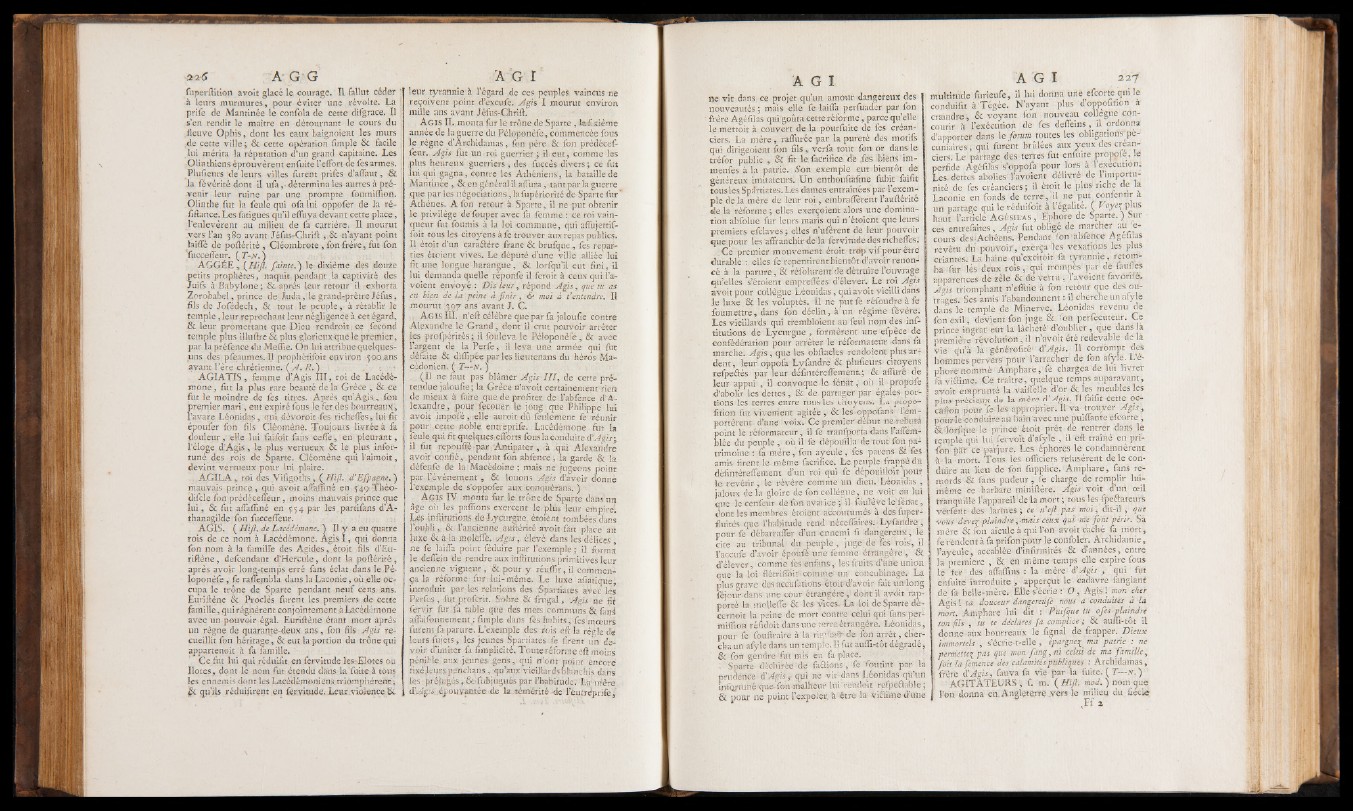 226 AGG
ſuperſtition avoit glacé le courage. Il fallut céder
à leurs murmures, pour éviter une révolte. La
priſe de Mantinée le conſola de cette diſgrace. Il
s'en rendit le maître en détournant le cours du
fleuve Ophis, dont les eaux baignoient les murs
de cette ville; & cette opération ſimple & facile
lui mérita la réputation d'un grand capitaine. Les
Olinthiens éprouvèrent enſuite l'effort de ſes armes.
Pluſieurs de leurs villes furent priſes d'aſſaut, &
la ſévérité dont il uſa, détermina les autres à pré-
venir leur ruine par une prompte ſoumiſſion.
Olinthe fut la ſeule qui oſa lui oppoſer de la ré-
ſiſtance. Les fatigues qu'il eſſuya devant cette place,
l'enlevèrent au milieu de ſa carrière. Il mourut
vers l'an 380 avant Jéſus-Chriſt, & n'ayant point
laiſſé de poſtérité, Cléombrote, ſon frère, fut ſon
ſucceſſeur. (T-N.)
AGGÉE, (Hiſt. ſainte.) le dixième des douze
petits prophètes, naquit pendant la captivité des
Juifs à Babylone; & après leur retour il exhorta
Zorobabel, prince de Juda, le grand-prêtre Jéſus,
fils de Joſédech, & tout le peuple, à rétablir le
temple, leur reprochant leur négligence à cet égard,
& leur promettant que Dieu rendroit ce ſecond
temple plus illuſtre & plus glorieux que le premier,
par la préſence du Meſſie. On lui attribue quelques-
uns des pſeaumes. Il prophétiſoit environ 500 ans
avant l'ère chrétienne. (A. R.)
AGIATIS, femme d'Agis III, roi de Lacédé-
mone, fut la plus rare beauté de la Grèce, & ce
fut le moindre de ſes titres. Après qu'Agis, ſon
premier mari, eut expiré ſous le fer des bourreaux,
l'avare Léonidas, qui dévoroit ſes richeſſes, lui fit
épouſer ſon fils Cléomène. Toujours livrée à ſa
douleur, elle lui faiſoit ſans ceſſe, en pleurant,
l'éloge d'Agis, le plus vertueux & le plus infor-
tuné des rois de Sparte. Cléomène qui l'aimoit,
devint vertueux pour lui plaire.
AGILA, roi des Viſigoths, (Hiſt. d'Eſpagne.)
mauvais prince, qui avoit aſſaſſiné en 549 Théo-
diſcle ſon prédéceſſeur, moins mauvais prince que
lui, & fut aſſaſſiné en 554 par les partiſans d'A-
thanagilde ſon ſucceſſeur.
AGIS. (Hiſt. de Lacédémone.) Il y a eu quatre
rois de ce nom à Lacédémone. Agis I, qui donna
ſon nom à la famille des Agides, étoit fils d'Eu-
riſtène, deſcendant d'Hercule, dont la poſtérité,
après avoir long-temps erré ſans éclat dans le Pé-
loponèſe, ſe raſſembla dans la Laconie, où elle oc-
cupa le trône de Sparte pendant neuf cens ans.
Euriſtène & Proclès furent les premiers de cette
famille, qui régnèrent conjointement à Lacédémone
avec un pouvoir égal. Euriſtène étant mort après
un règne de quarante-deux ans, ſon fils Agis re-
cueillit ſon héritage, & eut la portion du trône qui
appartenoit à ſa famille.
Ce fut lui qui réduiſit en ſervitude les Elotes ou
Ilotes, dont le nom fut étendu dans la ſuite à tous
les ennemis dont les Lacédémoniens triomphèrent,
& qu'ils réduiſirent en ſervitude. Leur violence &
AGI
leur tyrannie à l'égard de ces peuples vaincus ne
reçoivent point d'excuſe. Agis I mourut environ
mille ans avant Jéſus-Chriſt.
AGIS II. monta ſur le trône de Sparte, la ſixième
année de la guerre du Péloponèſe, commencée ſous
le règne d'Archidamas, ſon père & ſon prédéceſ-
ſeur. Agis fut un roi guerrier; il eut, comme les
plus heureux guerriers, des ſuccès divers; ce fut
lui qui gagna, contre les Athéniens, la bataille de
Mantinée, & en général il aſſura, tant par la guerre
que par les négociations, la ſupériorité de Sparte ſur
Athènes. A ſon retour à Sparte, il ne put obtenir
le privilège de ſouper avec ſa femme: ce roi vain-
queur fut ſoumis à la loi commune, qui aſſujettiſ-
ſoit tous les citoyens à ſe trouver aux repas publics.
Il étoit d'un caractère franc & bruſque, ſes repar-
ties étoient vives. Le député d'une ville alliée lui
fit une longue harangue, & lorſqu'il eut fini, il
lui demanda quelle réponſe il feroit à ceux qui l'a-
voient envoyé: Dis leur, répond Agis, que tu as
eu bien de la peine à finir, & moi à t'entendre. Il
mourut 397 ans avant J. C.
AGIS III. n'eſt célèbre que par ſa jalouſie contre
Alexandre le Grand, dont il crut pouvoir arrêter
les proſpérités; il ſouleva le Péloponèſe, & avec
l'argent de la Perſe, il leva une armée qui fut
défaite & diſſipée par les lieutenans du héros Ma-
cédonien. (T—N.)
(Il ne faut pas blâmer Agis III, de cette pré-
tendue jalouſie; la Grèce n'avoit certainement rien
de mieux à faire que de profiter de l'abſence d'A-
lexandre, pour ſecouer le joug que Philippe lui
avoit impoſé, elle auroit dû ſeulement ſe réunir
pour cette noble entrepriſe. Lacédémone fut la
ſeule qui fit quelques efforts ſous la conduite d'Agis;
il fut repouſſé par Antipater, à qui Alexandre
avoit confié, pendant ſon abſence, la garde & la
défenſe de la Macédoine: mais ne jugeons point
par l'événement, & louons Agis d'avoir donné
l'exemple de s'oppoſer aux conquérans.)
AGIS IV monta ſur le trône de Sparte dans un
âge où les paſſions exercent le plus leur empire.
Les inſtitutions de Lycurgue, étoient tombées dans
l'oubli, & l'ancienne auſtérité avoit fait place au
luxe & à la moleſſe. Agis, élevé dans les délices,
ne ſe laiſſa point ſéduire par l'exemple; il forma
le deſſein de rendre aux inſtitutions primitives leur
ancienne vigueur, & pour y réuſſir, il commen-
ça la réforme ſur lui-même. Le luxe aſiatique,
introduit par les relations des Spartiates avec les
Perſes, fut proſcrit. Sobre & frugal, Agis ne fit
ſervir ſur ſa table que des mets communs & ſans
aſſaiſonnement; ſimple dans ſes habits, ſes mœurs
furent ſa parure. L'exemple des rois eſt la règle de
leurs ſujets, les jeunes Spartiates ſe firent un de-
voir d'imiter ſa ſimplicité. Toute réforme eſt moins
pénible aux jeunes gens, qui n'ont point encore
fixé leurs penchans, qu'aux vieillards blanchis dans
les préjugés, & ſubjugués par l'habitude. La mère
d'Agis épouvantée de la témérité de l'entrepriſe,
AGI
ne vit dans ce projet qu'un amour dangereux des
nouveautés; mais elle ſe laiſſa perſuader par ſon
frère Agéſilas qui goûta cette réforme, parce qu'elle
le mettoit à couvert de la pourſuite de ſes créan-
ciers. La mère, raſſurée par la pureté des motifs
qui dirigeoient ſon fils, verſa tout ſon or dans le
tréſor public, & fit le ſacrifice de ſes biens im-
menſes à la patrie. Son exemple eut bientôt de
généreux imitateurs. Un enthouſiaſme ſubit ſaiſit
tous les Spartiates. Les dames entraînées par l'exem-
ple de la mère de leur roi, embraſſèrent l'auſtérité
de la réforme; elles exerçoient alors une domina-
tion abſolue ſur leurs maris qui n'étoient que leurs
premiers eſclaves; elles n'uſèrent de leur pouvoir
que pour les affranchir de la ſervitude des richeſſes.
Ce premier mouvement étoit trop vif pour être
durable: elles ſe repentirent bientôt d'avoir renon-
cé à la parure, & réſolurent de détruire l'ouvrage
qu'elles s'étoient empreſſées d'élever. Le roi Agis
avoit pour collègue Léonidas, qui avoit vieilli dans
le luxe & les voluptés. Il ne put ſe réſoudre à ſe
ſoumettre, dans ſon déclin, à un régime ſévère.
Les vieillards qui trembloient au ſeul nom des inſ-
titutions de Lycurgue, formèrent une eſpèce de
confédération pour arrêter le réformateur dans ſa
marche. Agis, que les obſtacles rendoient plus ar-
dent, leur oppoſa Lyſandre & pluſieurs citoyens
reſpectés par leur déſintéreſſement; & aſſuré de
leur appui, il convoque le ſénat, où il propoſe
d'abolir les dettes, & de partager par égales por-
tions les terres entre tous les citoyens. La propo-
ſition fut vivement agitée, & les oppoſans l'em-
portèrent d'une voix. Ce premier début ne rebuta
point le réformateur, il ſe tranſporta dans l'aſſem-
blée du peuple, où il ſe dépouilla de tout ſon pa-
trimoine: ſa mère, ſon ayeule, ſes parens & ſes
amis firent le même ſacrifice. Le peuple frappé du
déſintéreſſement d'un roi qui ſe dépouilloit pour
le revêtir, le révère comme un dieu. Léonidas,
jaloux de la gloire de ſon collègue, ne voit en lui
que le cenſeur de ſon avarice; il ſoulève le ſénat,
dont les membres étoient accoutumés à des ſuper-
fluités que l'habitude rend néceſſaires. Lyſandre,
pour ſe débarraſſer d'un ennemi ſi dangereux, le
cite au tribunal du peuple, juge de ſes rois, il
l'accuſe d'avoir épouſé une femme étrangère, &
d'élever, comme ſes enfans, les fruits d'une union
que la loi flétriſſoit comme un concubinage. La
plus grave des accuſations étoit d'avoir fait un long
ſéjour dans une cour étrangère, dont il avoit rap-
porté la moleſſe & les vices. La loi de Sparte dé-
cernoit la peine de mort contre celui qui ſans per-
miſſion réſidoit dans une terre étrangère. Léonidas,
pour ſe ſouſtraire à la rigueur de ſon arrêt, cher-
cha un aſyle dans un temple. Il fut auſſi-tôt dégradé,
& ſon gendre fut mis en ſa place.
Sparte déchirée de factions, ſe ſoutint par la
prudence d'Agis, qui ne vit dans Léonidas qu'un
infortuné que ſon malheur lui rendoit reſpectable;
& pour ne point l'expoſer à être la victime d'une
AGI 227
multitude furieuſe, il lui donna une eſcorte qui le
conduiſit à Tégée. N'ayant plus d'oppoſition à
craindre, & voyant ſon nouveau collègue con-
courir à l'exécution de ſes deſſeins, il ordonna
d'apporter dans le forum toutes les obligations pé-
cuniaires, qui furent brûlées aux yeux des créan-
ciers. Le partage des terres fut enſuite propoſé, le
perfide Agéſilas s'oppoſa pour lors à l'exécution.
Les dettes abolies l'avoient délivré de l'importu-
nité de ſes créanciers; il étoit le plus riche de la
Laconie en fonds de terre, il ne put conſentir à
un partage qui le réduiſoit à l'égalité. (Voyez plus
haut l'article AGÉSILAS, Ephore de Sparte.) Sur
ces entrefaites, Agis fut obligé de marcher au ſe-
cours des Achéens. Pendant ſon abſence Agéſilas
revêtu du pouvoir, exerça les vexations les plus
criantes. La haine qu'excitoit ſa tyrannie, retom-
ba ſur les deux rois, qui trompés par de fauſſes
apparences de zèle & de vertu, l'avoient favoriſé.
Agis triomphant n'eſſuie à ſon retour que des ou-
trages. Ses amis l'abandonnent: il cherche un aſyle
dans le temple de Minerve. Léonidas revenu de
ſon exil, devient ſon juge & ſon perſécuteur. Ce
prince ingrat eut la lâcheté d'oublier, que dans la
première révolution, il n'avoit été redevable de la
vie qu'à la généroſité d'Agis. Il corrompt des
hommes pervers pour l'arracher de ſon aſyle. L'é-
phore nommé Amphare, ſe chargea de lui livrer
ſa victime. Ce traître, quelque temps auparavant,
avoit emprunté la vaiſſelle d'or & les meubles les
plus précieux de la mère d'Agis. Il ſaiſit cette oc-
caſion pour ſe les approprier. Il va trouver Agis,
pour le conduire au bain avec une puiſſante eſcorte,
& lorſque le prince étoit prêt de rentrer dans le
temple qui lui ſervoit d'aſyle, il eſt traîné en pri-
ſon par ce parjure. Les éphores le condamnèrent
à la mort. Tous les officiers refuſèrent de le con-
duire au lieu de ſon ſupplice. Amphare, ſans re-
mords & ſans pudeur, ſe charge de remplir lui-
même ce barbare miniſtère. Agis voit d'un œil
tranquille l'appareil de la mort; tous les ſpectateurs
verſent des larmes; ce n'eſt pas moi, dit-il, que
vous devez plaindre, mais ceux qui me font périr. Sa
mère & ſon aïeule à qui l'on avoit caché ſa mort,
ſe rendent à ſa priſon pour le conſoler. Archidamie,
l'ayeule, accablée d'infirmités & d'années, entre
la première, & en même temps elle expire ſous
le fer des aſſaſſins: la mère d'Agis, qui fut
enſuite introduite, apperçut le cadavre ſanglant
de ſa belle-mère. Elle s'écrie: O, Agis! mon cher
Agis! ta douceur dangereuſe nous a conduites à la
mort. Amphare lui dit: Puiſque tu oſes plaindre
ton fils, tu te déclares ſa complice; & auſſi-tôt il
donne aux bourreaux le ſignal de frapper. Dieux
immortels, s'écrie-t-elle, épargnez ma patrie: ne
permettez pas que mon ſang, ni celui de ma famille,
ſoit la ſemence des calamités publiques: Archidamas,
frère d'Agis, ſauva ſa vie par la fuite. (T—N.)
AGITATEURS, ſ. m. (Hiſt. mod.) nom que
l'on donna en Angleterre vers le milieu du ſiècle
Ff 2